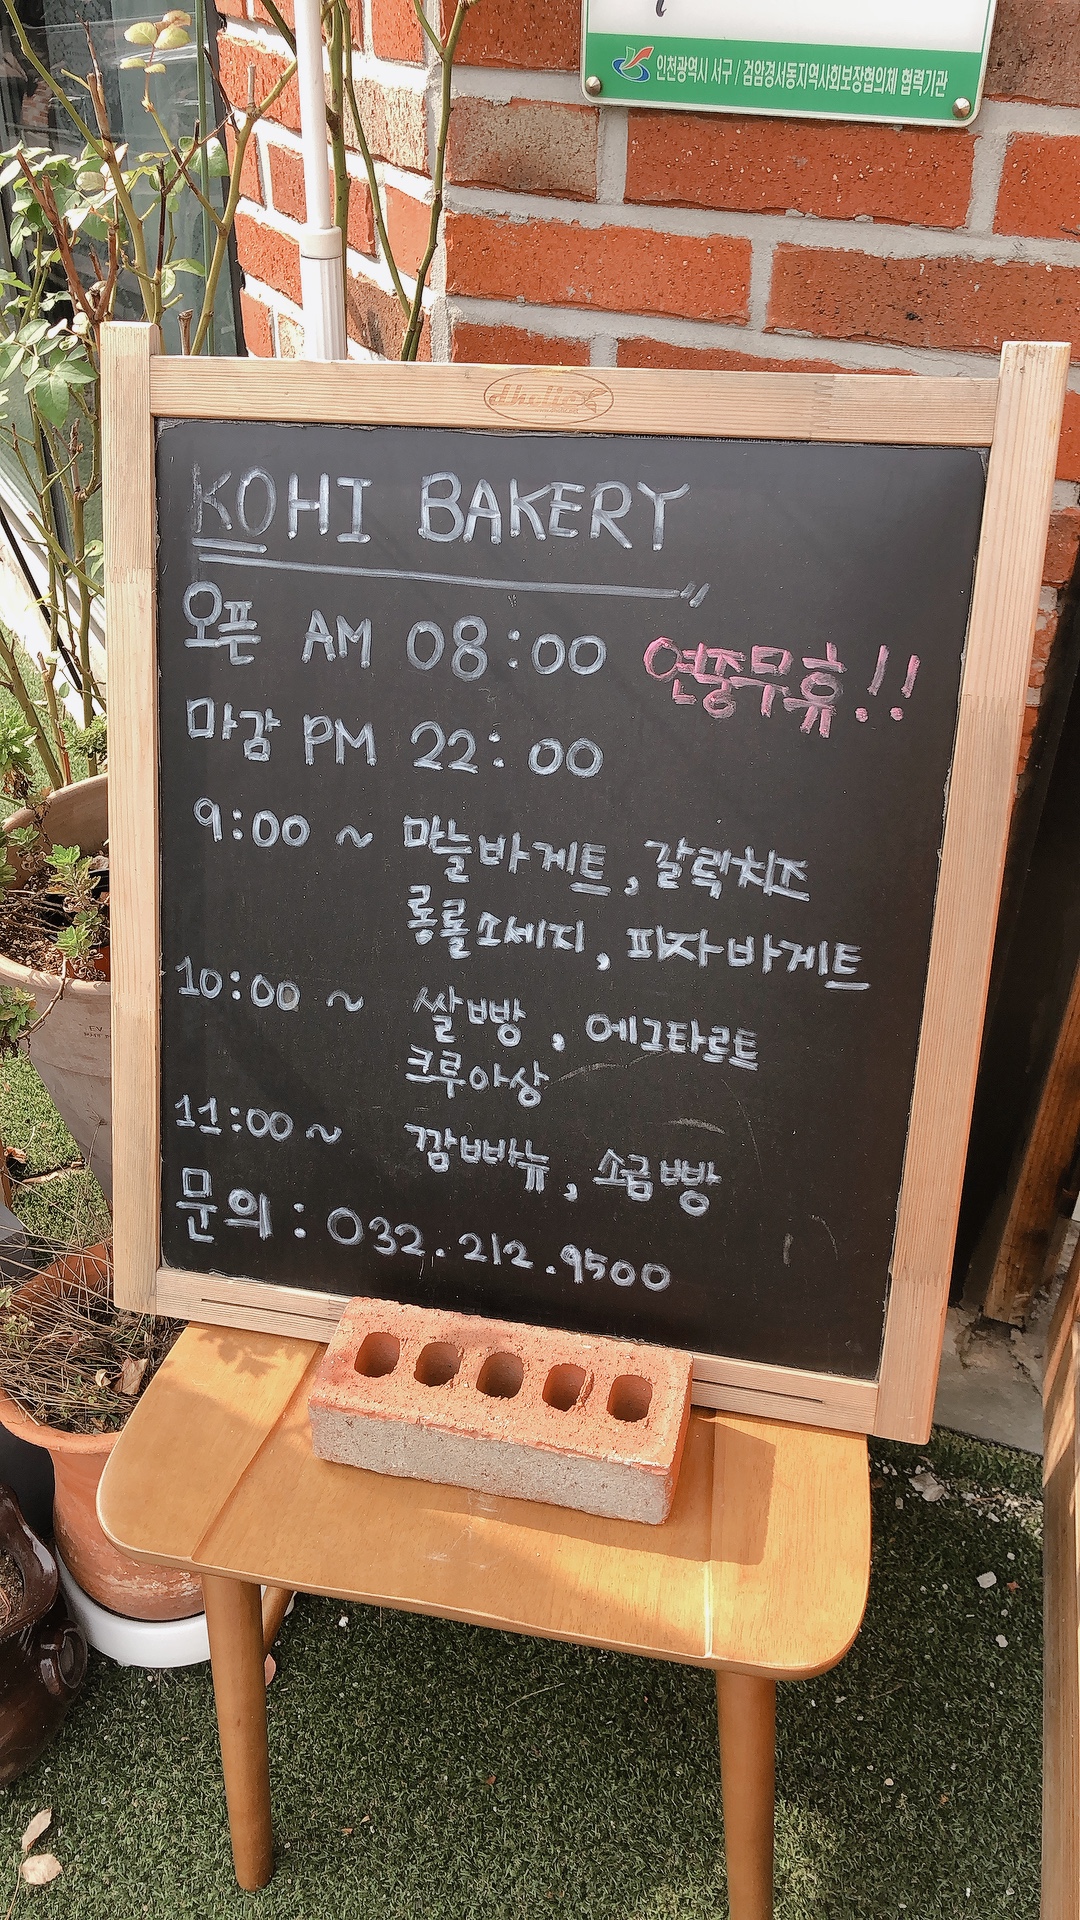 인천광역시 서구 / 검암경서동지역사회보장협의체 협력기관
KOHI BAKERY
오픈 AM 08:00 연중무휴!!
마감 PM 22:00
9:00 ~ 마늘바게트, 갈릭치즈
롱롤소세지, 피자바게트
10:00 ~ 쌀빵, 에그타르트
크루아상
11:00 ~ 깜빠뉴, 소금빵
문의 : 032.212.9500